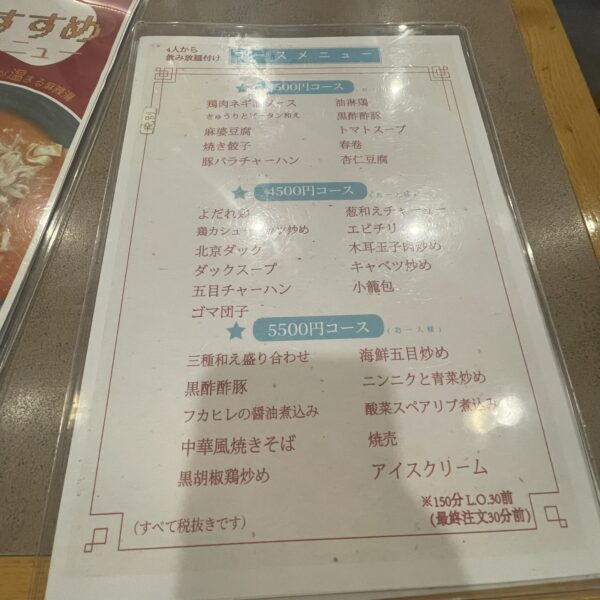 すすめ
ニュー
4人から
飲み放題付け
コースメニュー
500円コース
税別
鶏肉ネギ油ソース
油淋鶏
きゅうりとピータン和え
黒酢酢豚
麻婆豆腐
トマトスープ
焼き餃子
春巻
豚バラチャーハン
杏仁豆腐
4500円コース
よだれ鶏
葱和えチャーシュー
鶏カシューナッツ炒め
エビチリ
北京ダック
木耳玉子肉炒め
ダックスープ
キャベツ炒め
五目チャーハン
小籠包
ゴマ団子
5500円コース
(お一人様)
三種和え盛り合わせ
海鮮五目炒め
黒酢酢豚
ニンニクと青菜炒め
フカヒレの醤油煮込み
酸菜スペアリブ煮込み
中華風焼きそば
焼売
黒胡椒鶏炒め
アイスクリーム
※150分 L.O.30前
(最終注文30分前)
(すべて税抜きです)